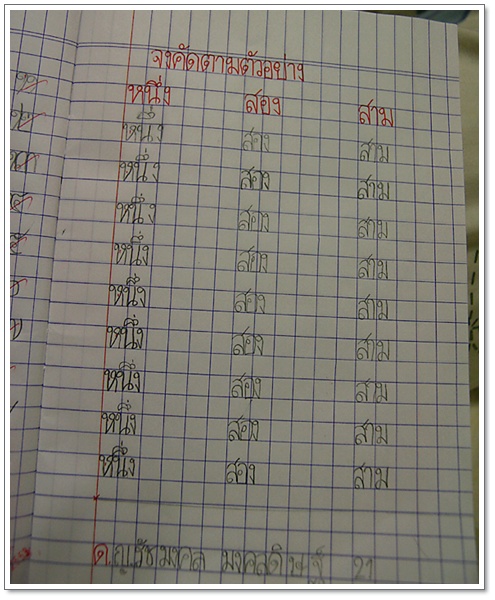 จงคัดตามตัวอย่าง
หนึ่ง สอง สาม
หนึ่ง สอง สาม
หนึ่ง สอง สาม
หนึ่ง สอง สาม
หนึ่ง สอง สาม
หนึ่ง สอง สาม
หนึ่ง สอง สาม
หนึ่ง สอง สาม
หนึ่ง สอง สาม
หนึ่ง สอง สาม
ด.ญ.รัชมงคล 21